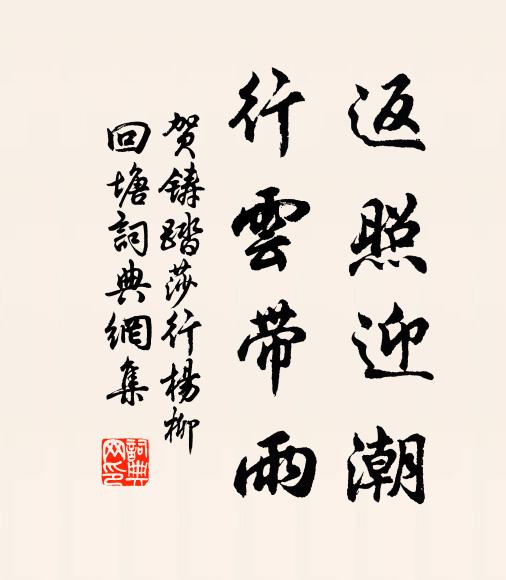 返照迎潮
行雲帶雨
贺鑄踏莎行楊柳
回塘詞典網集
詞典
网印